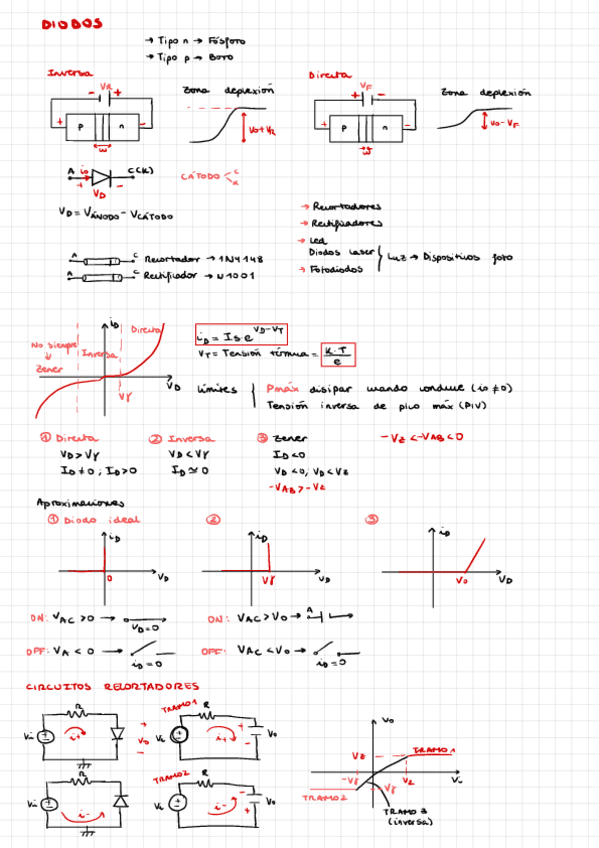 DIODOS
→ Tipo n → Fósforo
→ Tipo p → Boro
Inversa
- VR +
+ p n -
w
Zona deplexión
Vo+VR
Directa
VF
- +
+ p n -
w
Zona deplexión
Vo-VF
A iD C(K)
+ VD -
CÁTODO C K
VD = VÁNODO - VCÁTODO
→ Recortadores
→ Rectificadores
→ Led
Diodos laser
→ Fotodiodos
Luz → Dispositivos foto
A C Recortador → 1N4148
A C Rectificador → N1001
iD
Directa
No siempre
Zener
Inversa
Vγ
VD
iD = Is e VD-VT
VT = Tensión térmica = K·T/e
Límites { Pmáx disipar cuando conduce (iD ≠ 0)
Tensión inversa de pico máx (PIV)
① Directa
VD > Vγ
ID ≠ 0 ; ID > 0
② Inversa
VD < Vγ
ID ≃ 0
③ Zener
ID < 0
VD < 0, VD < VZ
-VAB > -VZ
-VZ < -VAB < 0
Aproximaciones
① Diodo ideal
iD
0
VD
②
iD
Vγ
VD
③
iD
Vo
VD
ON: VAC > 0 →
VD = 0
OFF: VA < 0 →
iD = 0
ON: VAC > Vo → A
OFF: VAC < Vo →
iD = 0
CIRCUITOS RECORTADORES
R
Vi
i+
+
Vo
-
TRAMO1
R
i+
+
-
Vo
R
Vi
i-
TRAMO2
R
Vi
i-
-
+
Vo
Vo
VZ
TRAMO1
-Vγ
VZ
Vi
TRAMO2
-Vγ
TRAMO 3
(inversa)